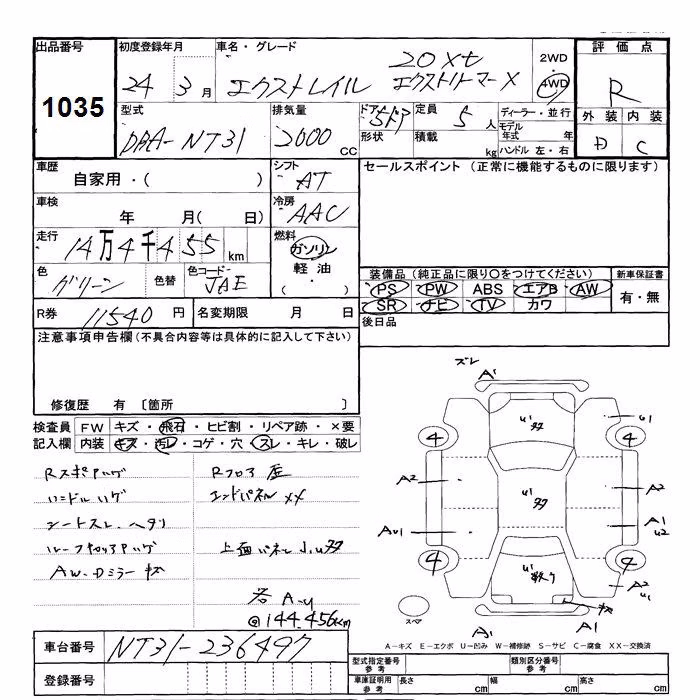 出品番号 初度登録年月 車名・グレード 評価点
1035
24 3月 エクストレイル 20Xt エクストリーマーX
2WD
4WD
R
型式 排気量 ドア 定員 ディーラー・並行 外装 内装
DBA-NT31 2000 CC 5ドア 5人 モデル年式 年
形状 積載 kg ハンドル 左・右 D C
車歴 シフト セールスポイント (正常に機能するものに限ります)
自家用・( ) AT
車検 冷房
年 月( 日) AAC
走行 燃料
14万4千455km ガソリン
軽油
( ・ )
色 色替 色コード
グリーン JAE
装備品(純正品に限り○をつけてください) 新車保証書
PS PW ABS エアB AW 有・無
SR ナビ TV カワ
R券 11540円 名変期限 月 日 後日品
注意事項申告欄(不具合内容等は具体的に記入して下さい)
修復歴 有 〔箇所 〕
検査員 FW キズ・飛石・ヒビ割・リペア跡・×要
記入欄 内装 キズ・汚レ・コゲ・穴・スレ・キレ・破レ
ハンドルハゲ エンドパネルXX
シートスレ・ヘタリ
AW・Dミラーキズ
A-U
@144,456km
車台番号 NT31-236497
登録番号
ズレ
A1
U1
4 4
A2 A2
A1
U2
4 4
A2
U1
キズ
スペア
A1 A1
A-キズ E-エクボ U-凹み W-補修跡 S-サビ C-腐食 XX-交換済
型式指定番号 参考 類別区分番号 参考
車庫証明用 参考 長さ cm 幅 cm 高さ cm